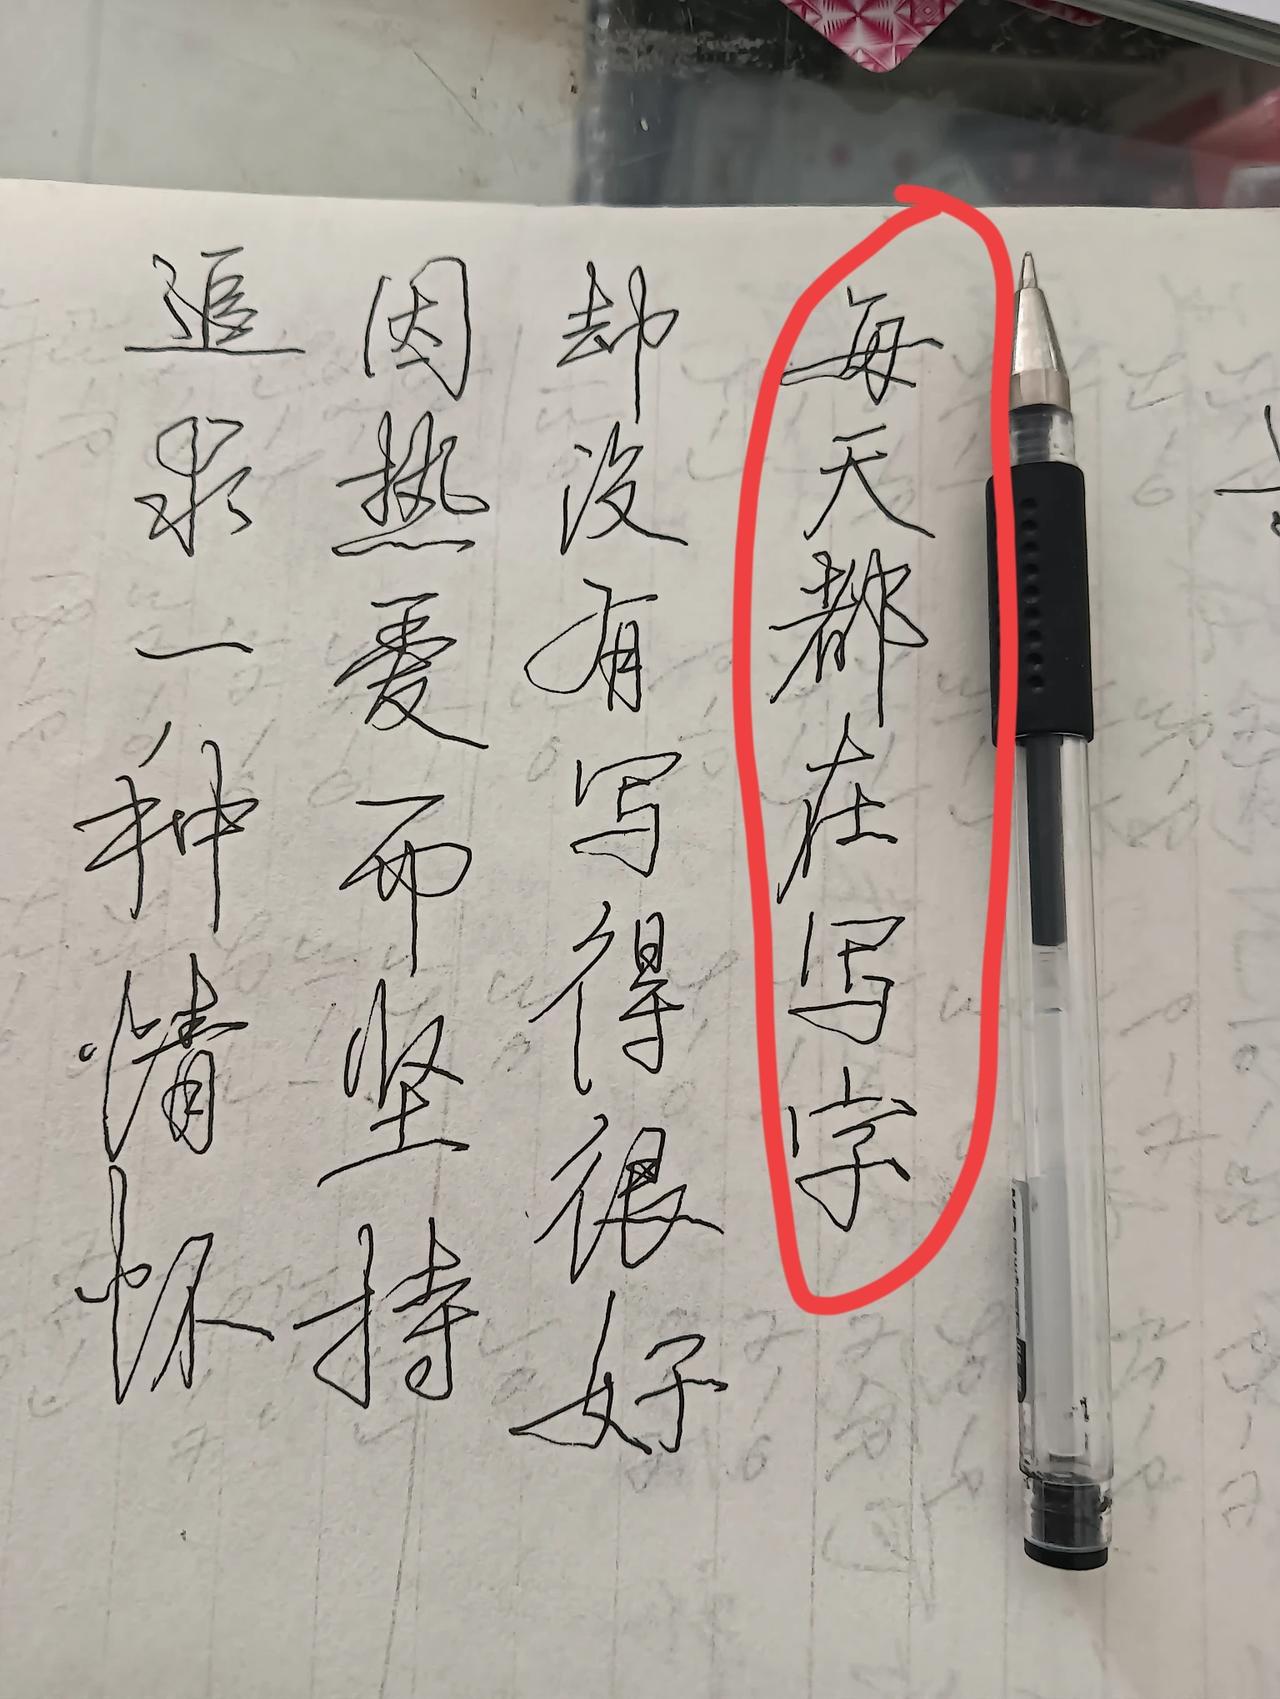 每天都在写字
却没有写得很好
因热爱而坚持
追求一种情怀